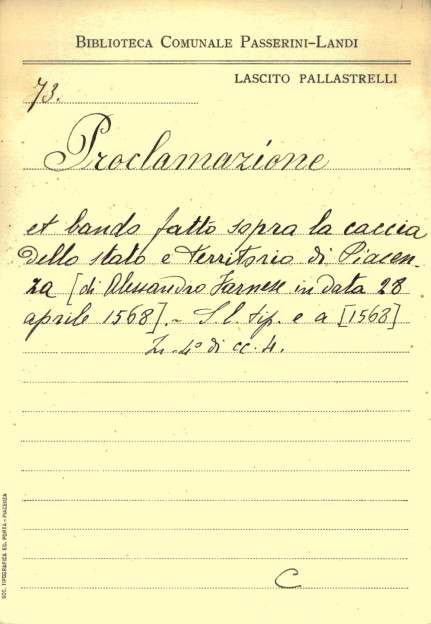 BIBLIOTECA COMUNALE PASSERINI-LANDI
LASCITO PALLASTRELLI
73.
Proclamazione
et bando fatto sopra la caccia
dello stato e territorio di Piacen-
za [di Alessandro Farnese in data 28
aprile 1568]. - S. l. tip. e a [1568]
In-4° di cc. 4.
C
SOC. TIPOGRAFICA ED. PORTA - PIACENZA